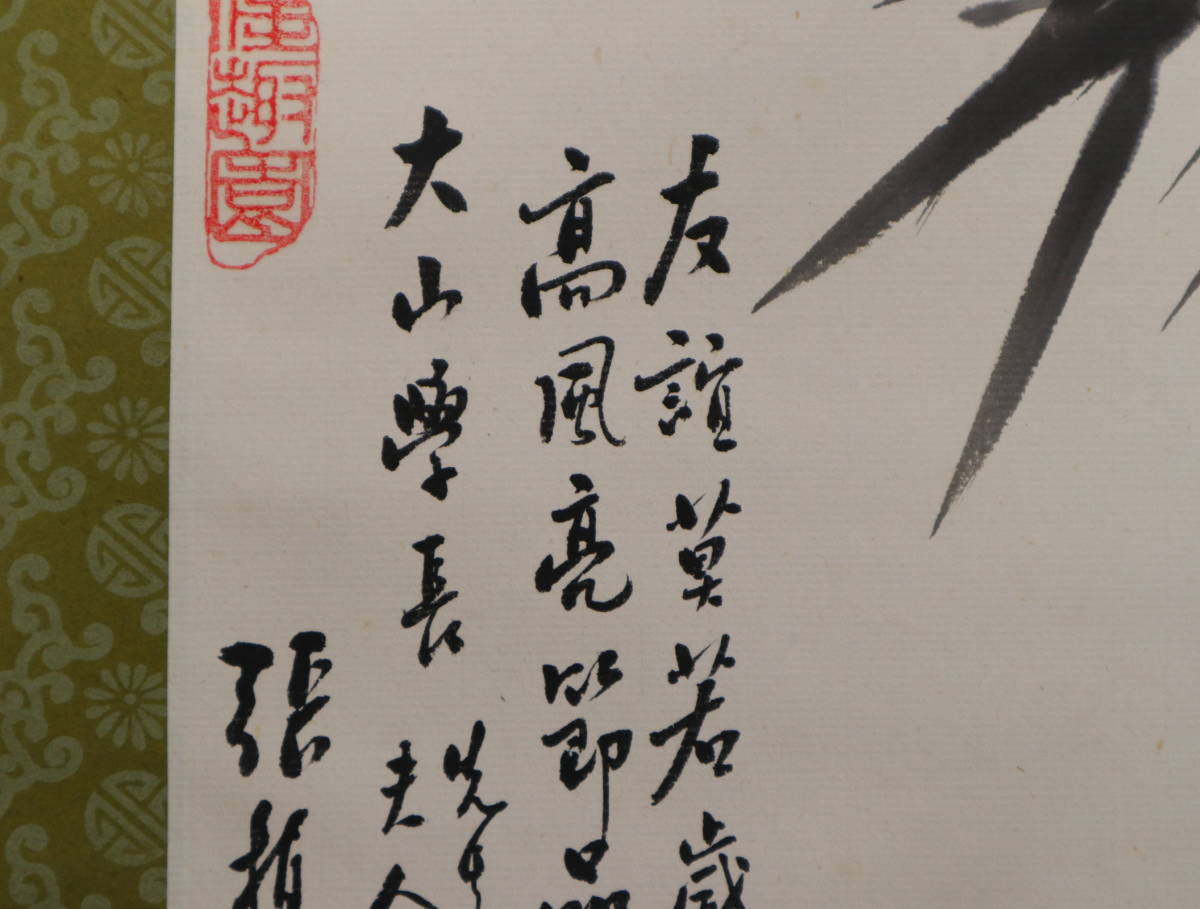 友誼莫若歲
高風亮節品
大山學長
先生
夫人
張